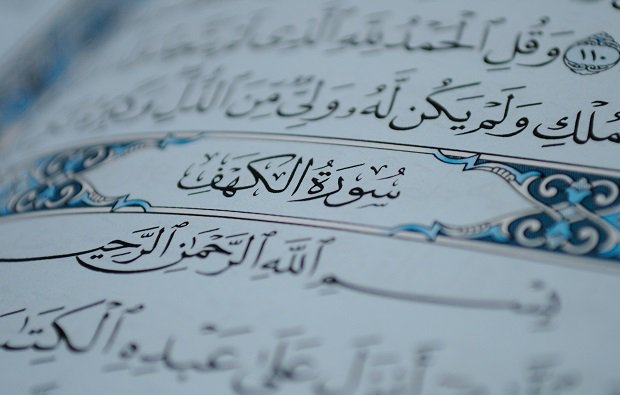 ١١٠ وَقُلِ ٱلْحَمْدُ لِلَّهِ ٱلَّذِى لَمْ يَتَّخِذْ
ٱلْمُلْكِ وَلَمْ يَكُن لَّهُۥ وَلِىٌّ مِّنَ ٱلذُّلِّ وَكَبِّرْهُ
سُورَةُ الْكَهْفِ
بِسْمِ ٱللَّهِ ٱلرَّحْمَٰنِ ٱلرَّحِيمِ
أَنزَلَ عَلَىٰ عَبْدِهِ ٱلْكِتَٰبَ